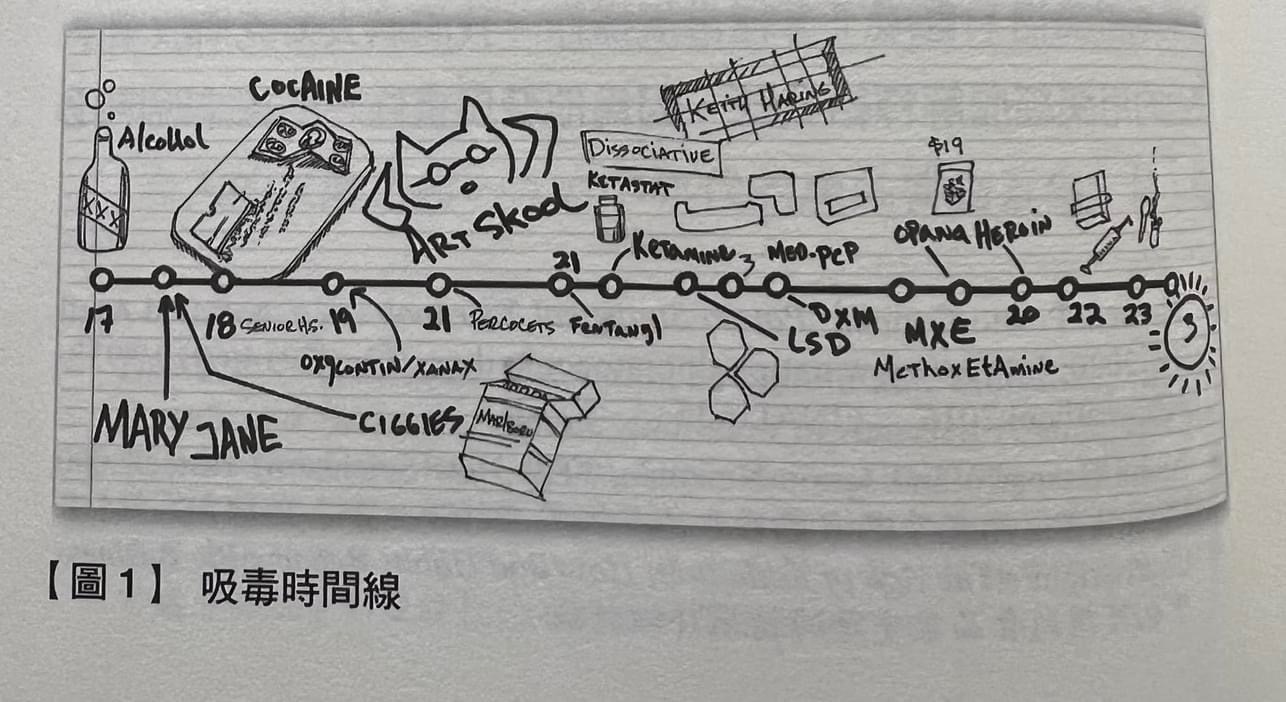 KEITH HARING
COCAINE
Alcohol
XXX
DISSOCIATIVE
$19
KETASTAT
ART SKOOL
OPANA HEROIN
KETAMINE
MED-PCP
21
17
18 SENIOR HS. 19
21 PERCOCETS
FENTANYl
DXM
LSD
MXE
20
22
23
METHOXETAMINE
OXYCONTIN/XANAX
MARY JANE
CIGGIES
MARlBORO
【圖1】 吸毒時間線